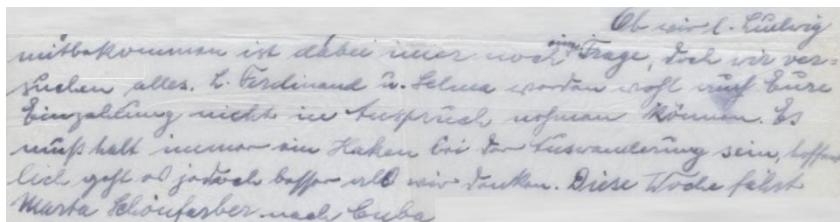 Ob wir l. Ludwig
mitbekommen ist dabei imer noch eine Frage, doch wir ver=
suchen alles. L. Ferdinand u. Selma werden wohl auch Eure
Einzahlung nicht in Anspruch nehmen können. Es
muß halt immer ein Haken bei der Auswanderung sein, hoffent
lich geht es jedoch besser als wir denken. Diese Woche fährt
Marta Schönfarber nach Cuba